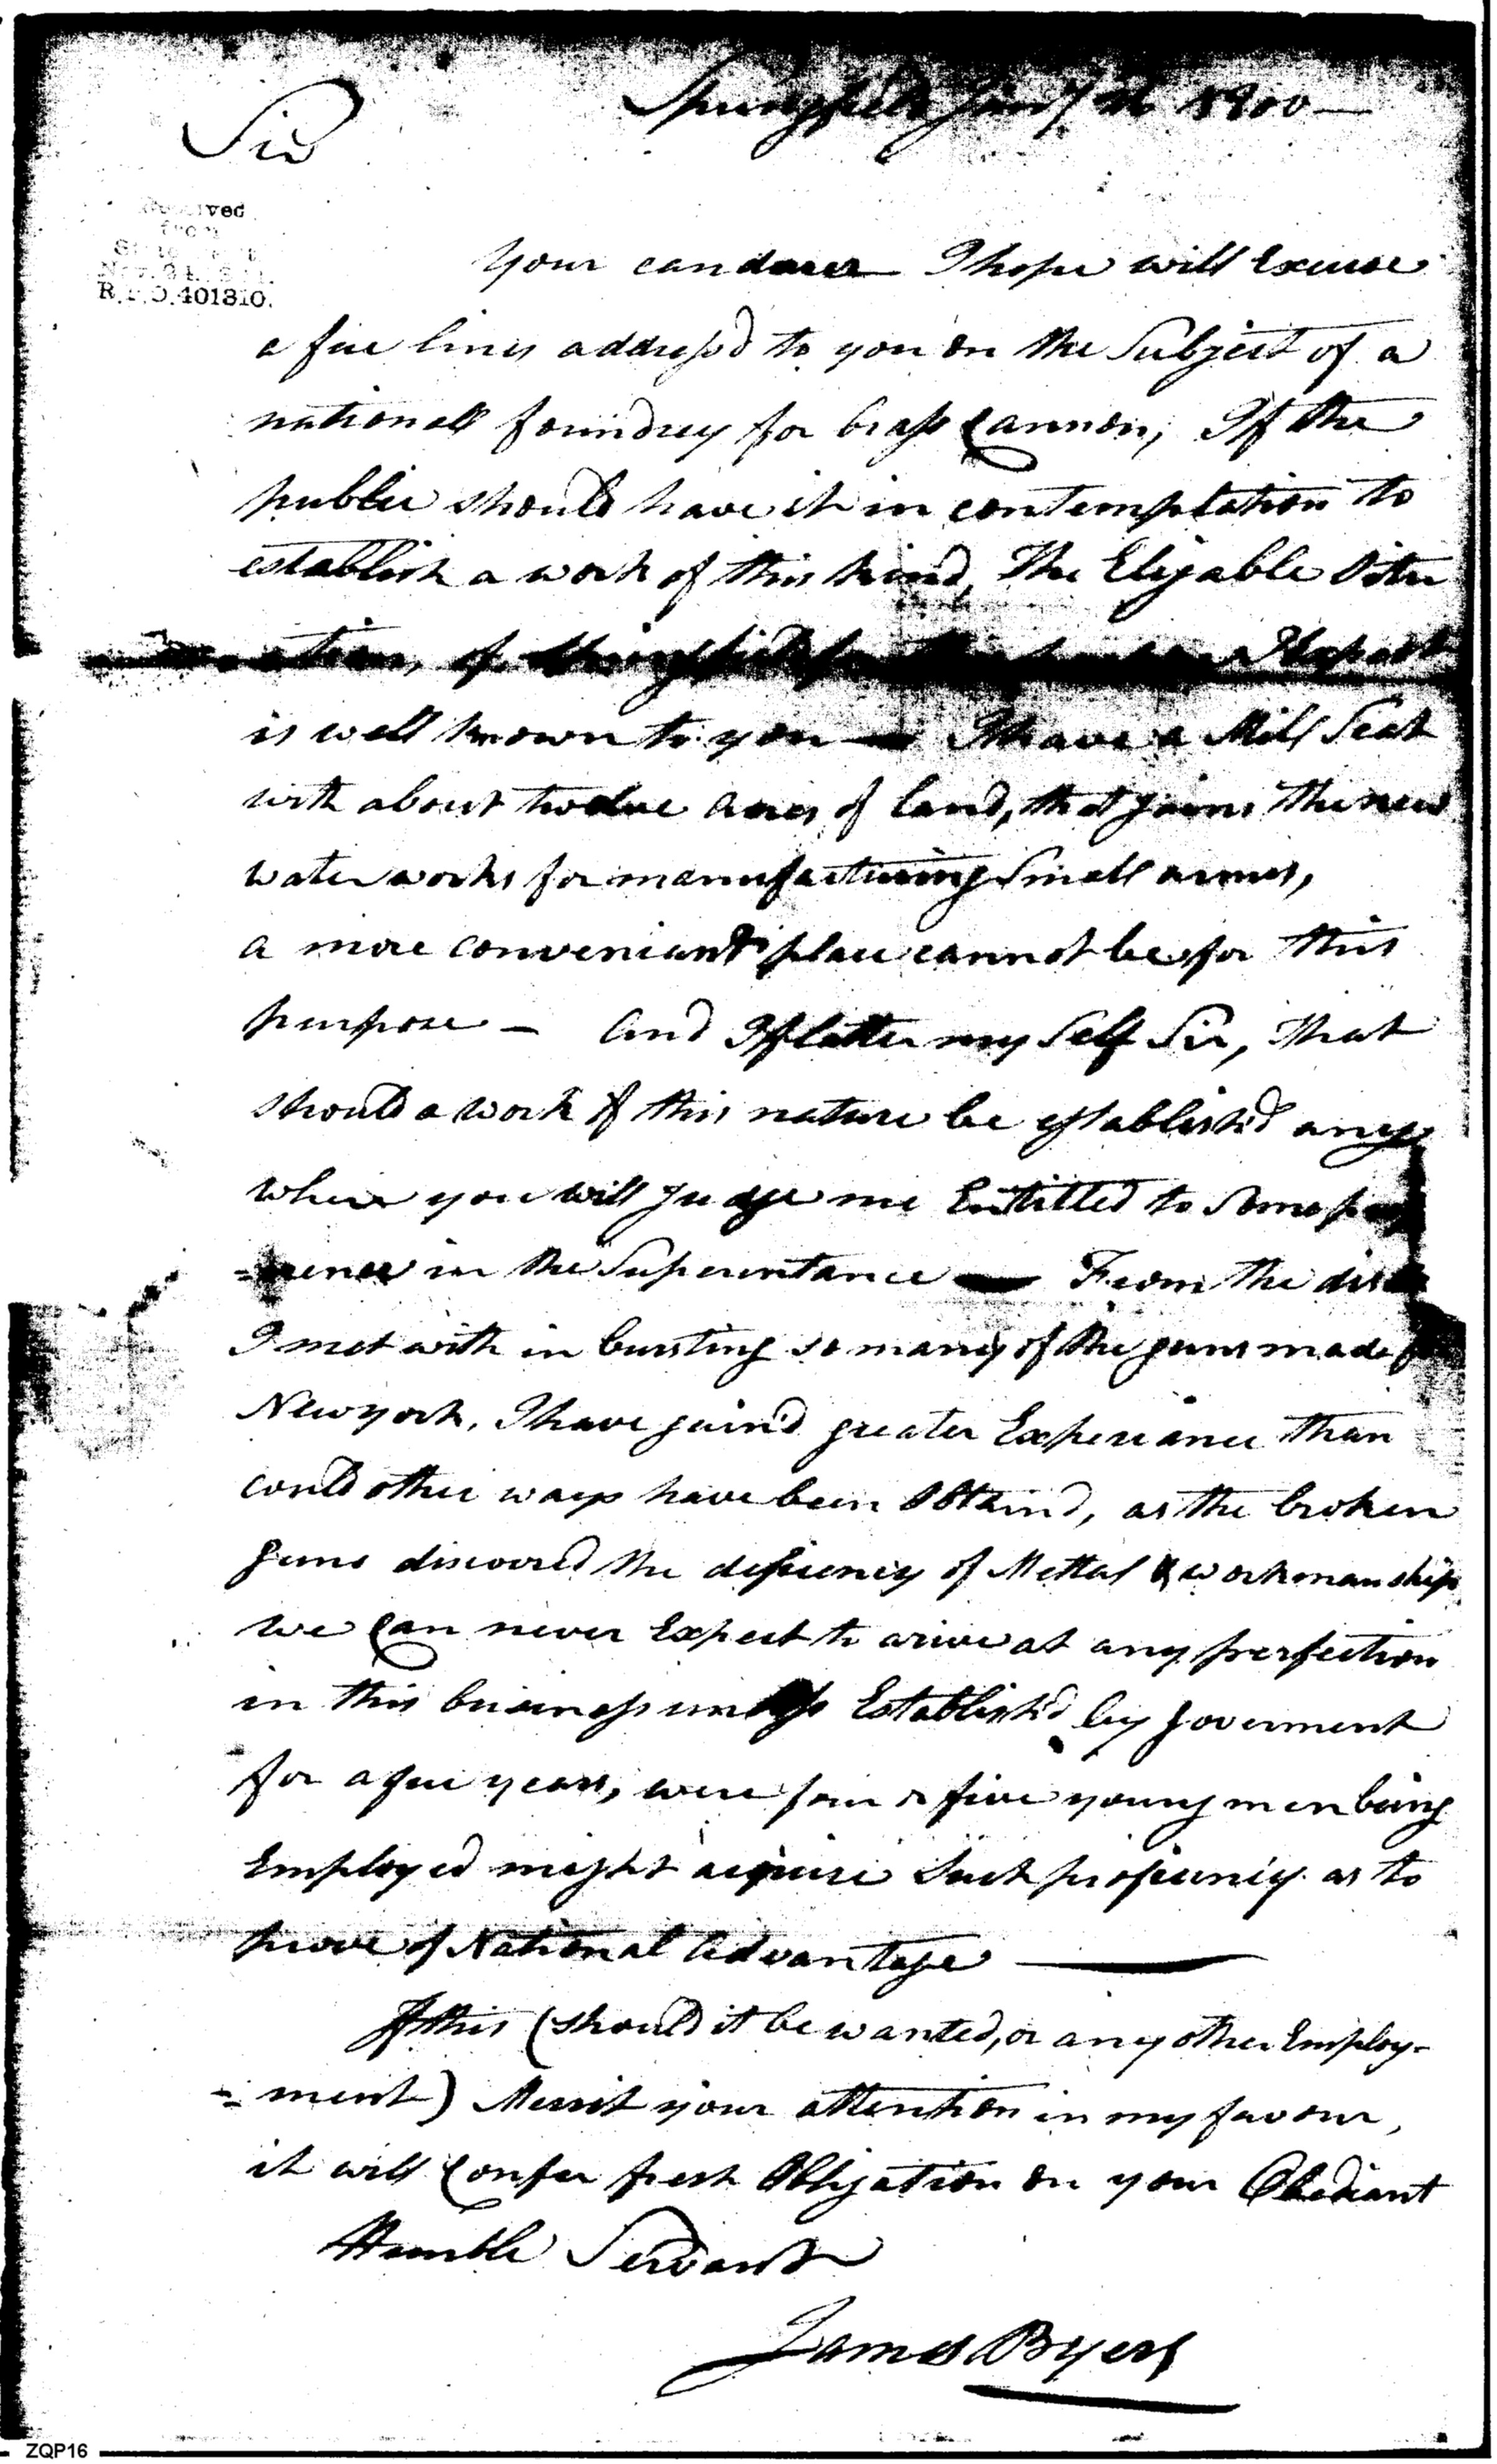 Springfield Jany 1800 —
Sir
Received
from
State
Nov. 24,
R.&D. 401310.
Your candour I hope will Excuse
a few lines address'd to you on the Subject of a
nationall foundrey for brass Cannon; If the
public should have it in contemplation to
establish a work of this kind, The Elijable Situ
ation, of Springfield for
is well known to you — I have a Mill Seat
with about twelve Acres of land, that joins the new
water works for manufacturing Small armes,
a more conveniant place cannot be for this
purpose — And I flatter my Self Sir, that
should a work of this nature be establish'd any
where you will judge me Entitled to Some
in the Superentance — From the
I met with in bursting so many of the guns made for
Newyork, I have gain'd greater Experiance than
could other ways have been Obtain'd, as the broken
guns discoverd the deficiency of Mettal & workmanship
we Can never Expect to arive at any perfection
in this business unless Establish'd by goverment
for a few years, were four or five young men being
Employed might acquire Such proficiency as to
prove of National Advantage —
If this (should it be wanted, or any other Employ-
=ment) Merrit your attention in my favour,
it will Confer fresh Obligation on your Obediant
Humble Servant
James Byers
ZQP16